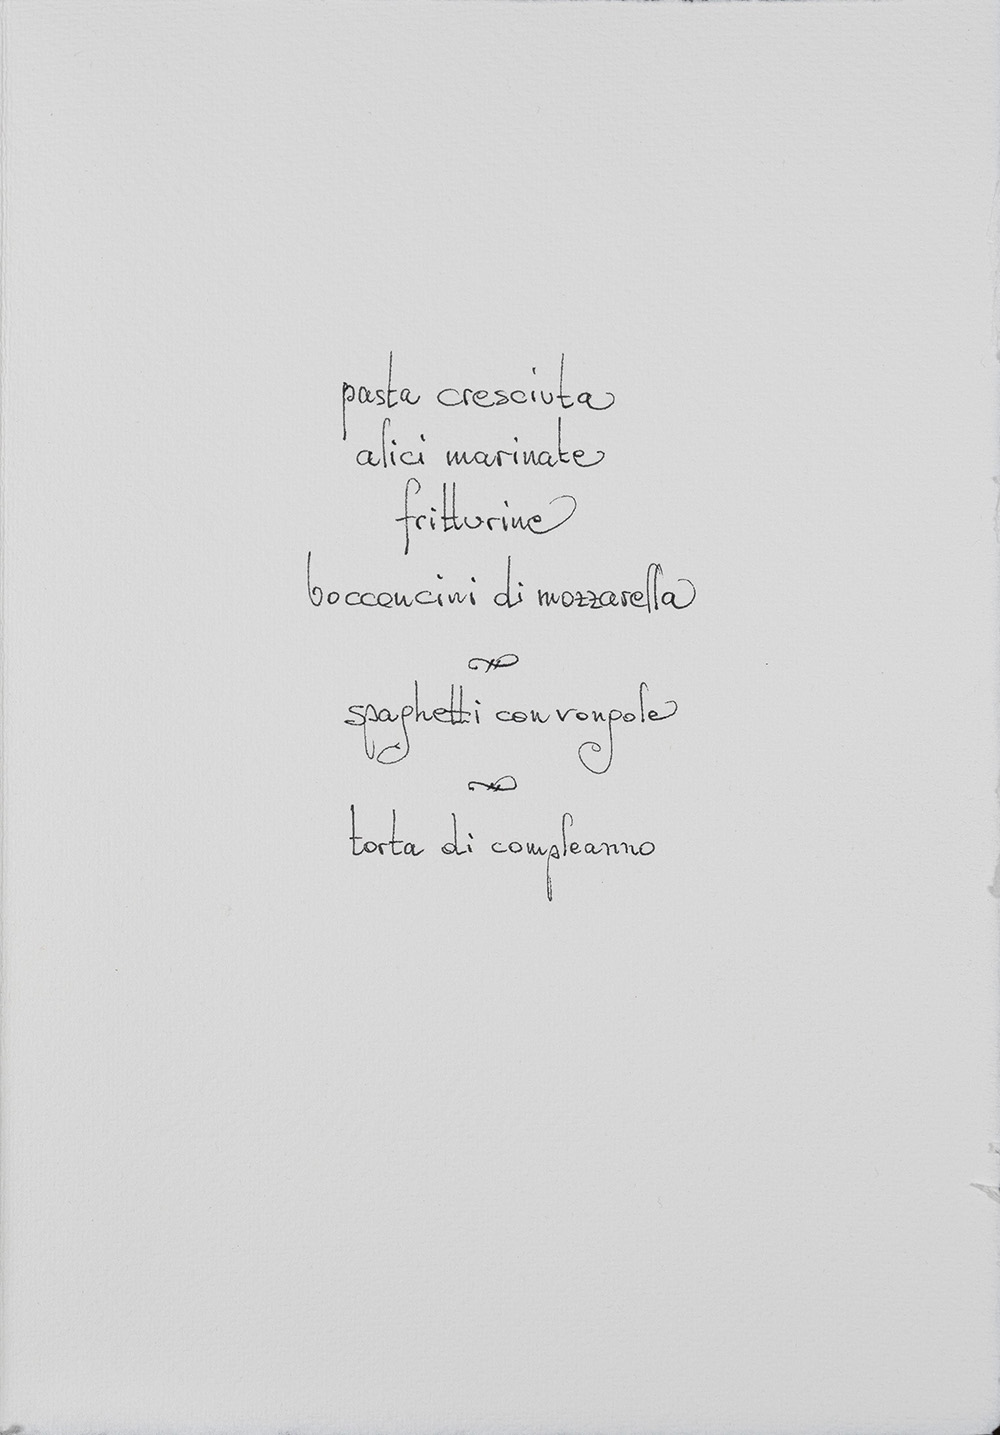 pasta cresciuta
alici marinate
fritturine
bocconcini di mozzarella
spaghetti con vongole
torta di compleanno